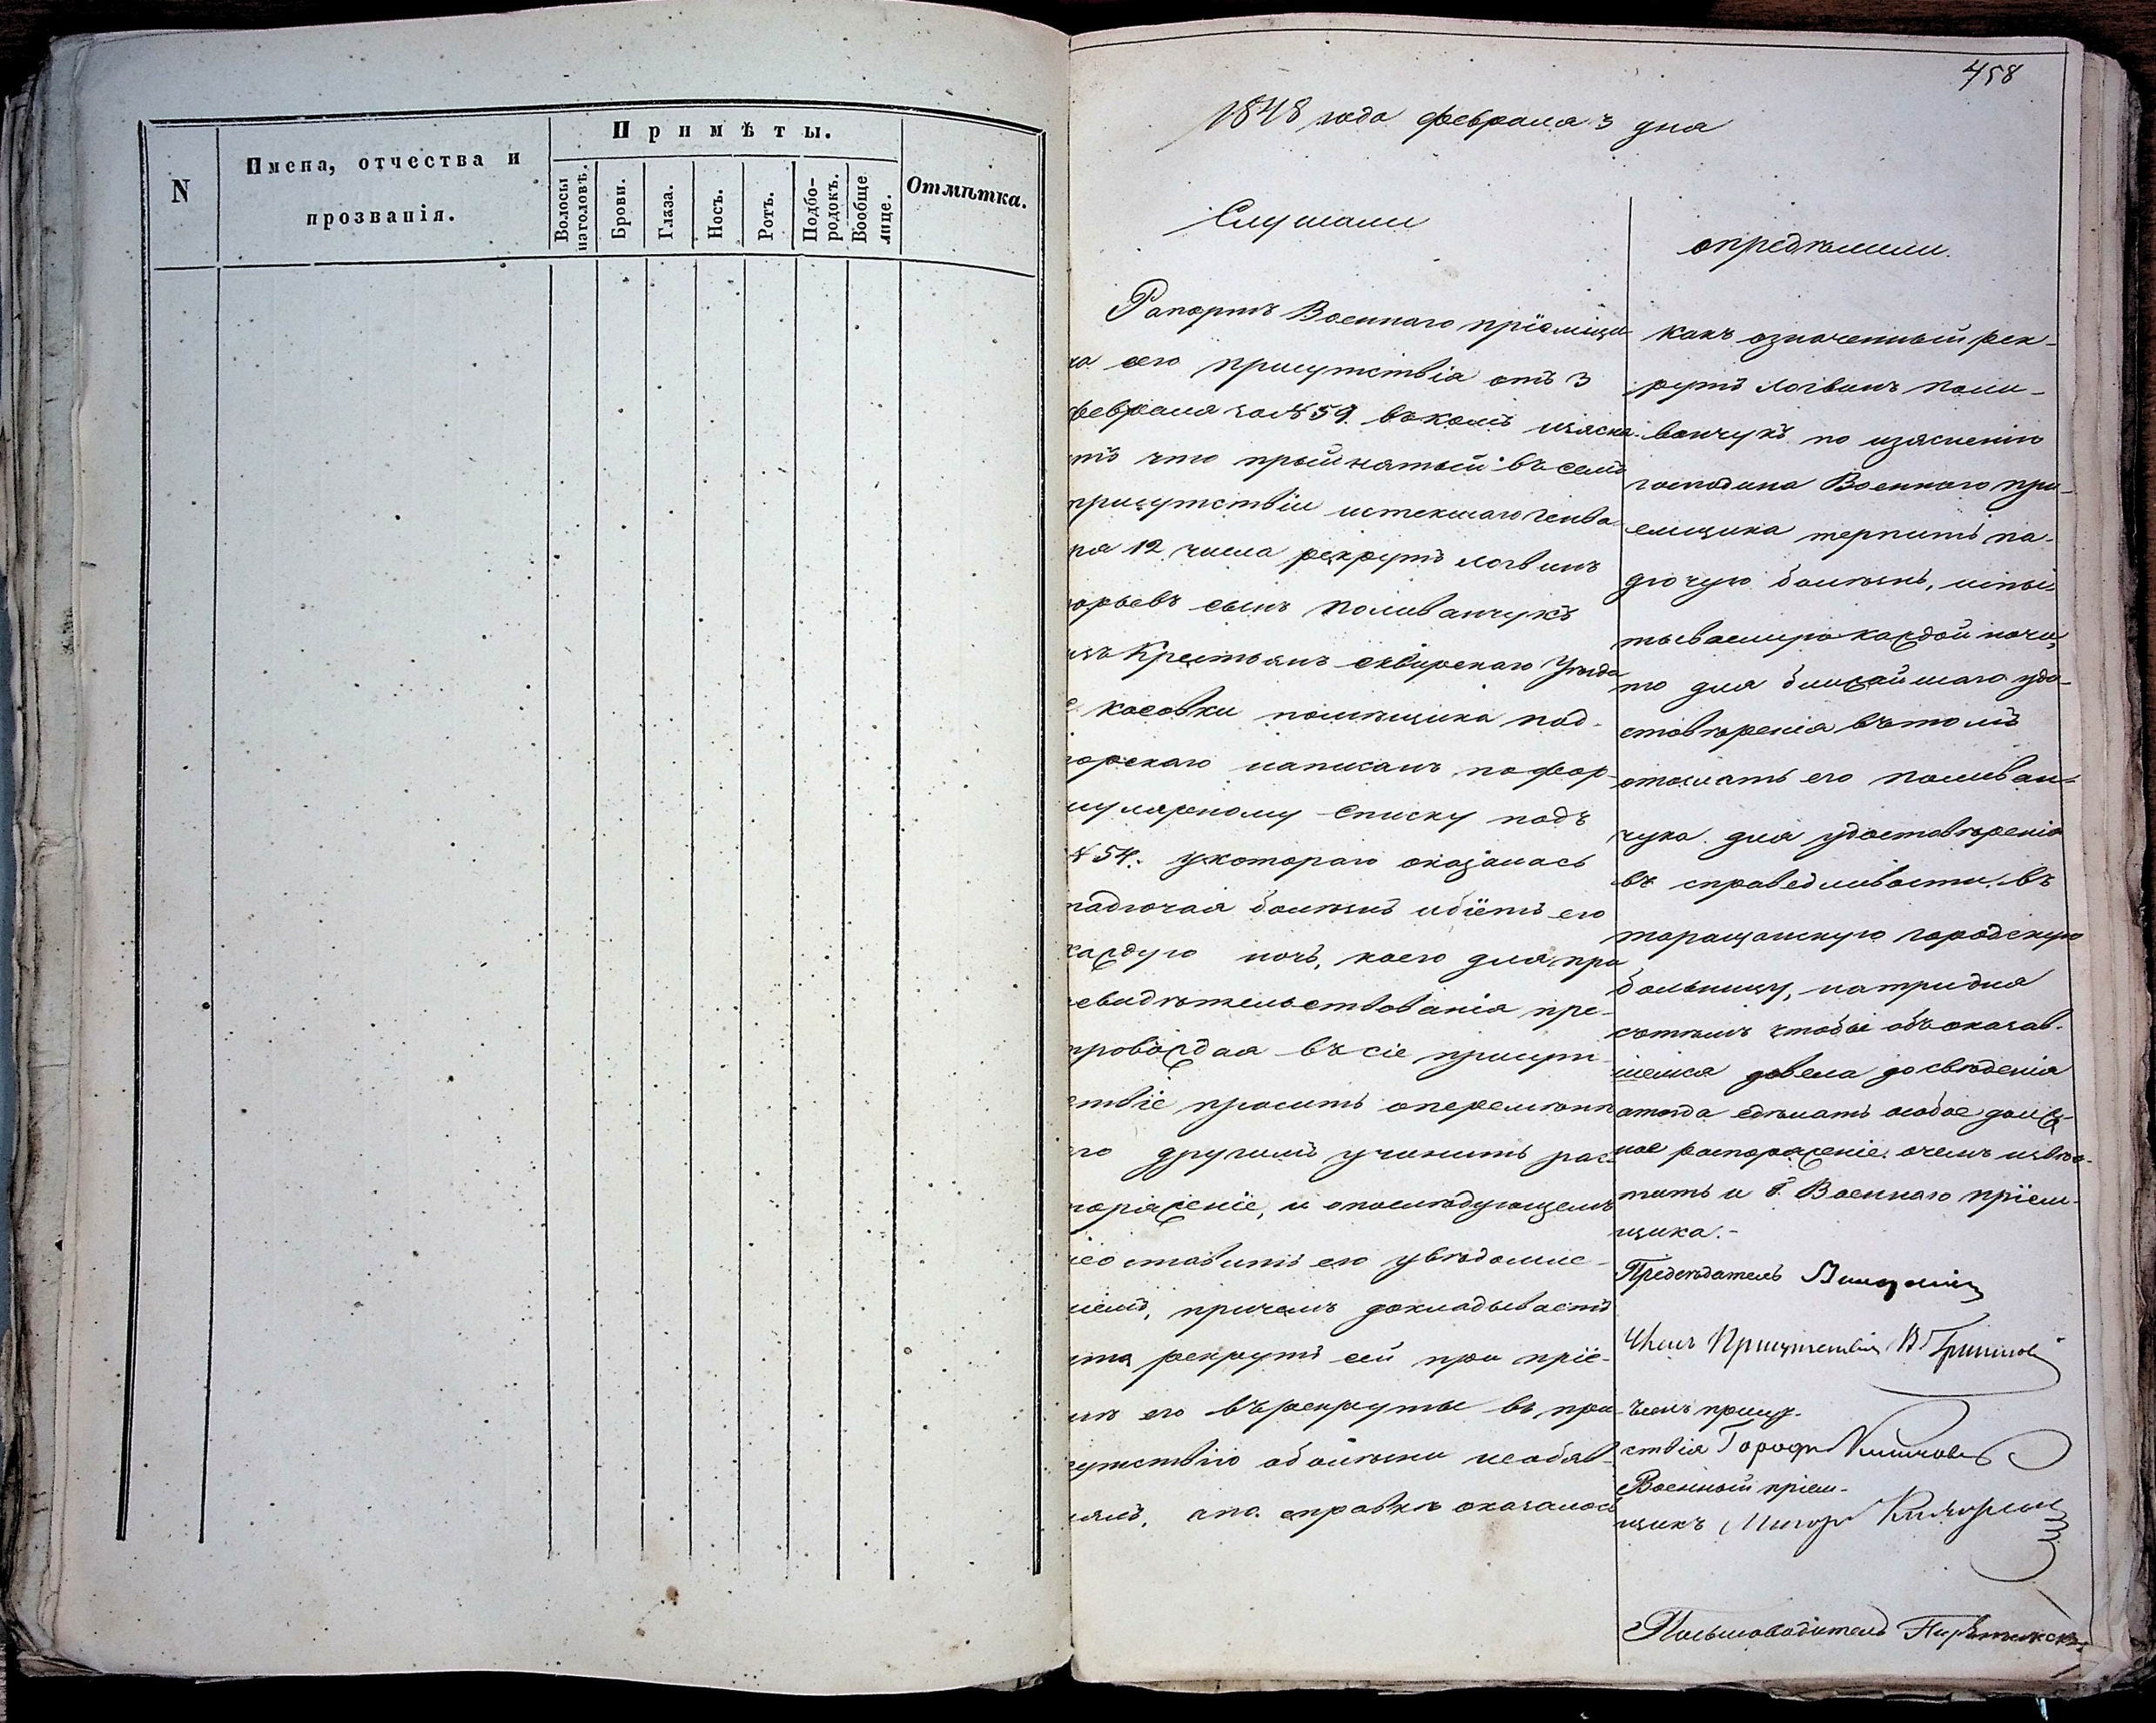 N
Имена, отчества и
прозванія.
Примѣты.
Волосы
наголовѣ.
Брови.
Глаза.
Носъ.
Ротъ.
Подбо-
родокъ.
Вообще
лице.
Отмѣтка.
458
1848 года февраля 3 дня
Слушали
Рапортъ Военнаго пріемщи
ка сего присутствія отъ 3
февраля за №59. въ коемъ изясня
етъ что прыйнятый въ семъ
присутствіи истекшаго генва
ря 12 числа рекрутъ Логвинъ
сынъ Поливанчукъ
изъ Крестьянъ сквирскаго Уѣзда
с. косовки помѣщика под-
горскаго написанъ по фор-
мулярному списку подъ
№54. укотораго оказалась
падючая болѣзнь ибіетъ его
каждую ночь, коего для пре
свидѣтельствованія пре-
провождая въ сіе присут-
ствіе проситъ оперемѣнѣ
его другимъ учинить рас-
поряженіе, и опослѣдующемъ
неоставить его увѣдомле-
ніемъ, причемъ докладываетъ
что рекрутъ сей при пріе-
мѣ его върекруты въ при
сутствію оболѣзни необяв-
лялъ, апо справкѣ оказалось
опредѣлили.
Какъ означенный рек-
рутъ Логвинъ поли-
ванчукъ по изясненію
господина Военного при-
емщика терпитъ па-
дючую болѣзнь,
каждой ночи,
то для ближайшаго удо-
стовѣренія вътомъ
отослать его поливан-
чука для удостовѣренія
въ справедливости въ
таращанскую городскую
больницу, натри дня
сътѣмъ чтобы объоказав-
шемся довела досвѣденія
атогда сдѣлать особое долж-
ное распоряженіе. очемъ извѣс-
тить и Г. Военнаго пріем-
щика.-
Предсѣдатель
Членъ Присутствія
Членъ присут-
ствія
Военный пріем-
щикъ Маіоръ
Письмоводитель